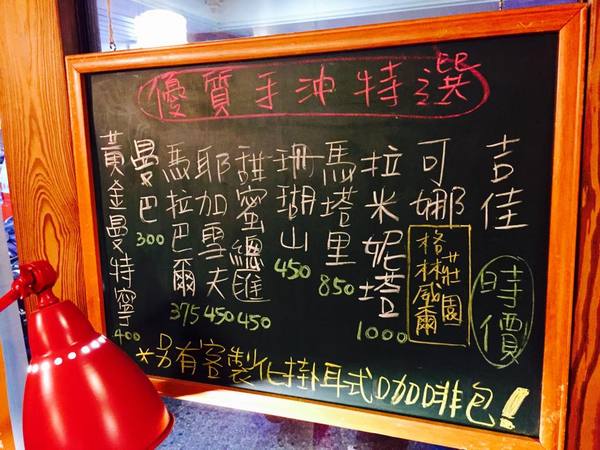 優質手沖特選
吉佳
時價
可娜
格林威爾
莊園
拉米妮塔
1000
馬塔里
850
珊瑚山
450
甜蜜總匯
450
耶加雪夫
450
馬拉巴爾
375
曼巴
300
黃金曼特寧
400
*另有客製化掛耳式咖啡包!